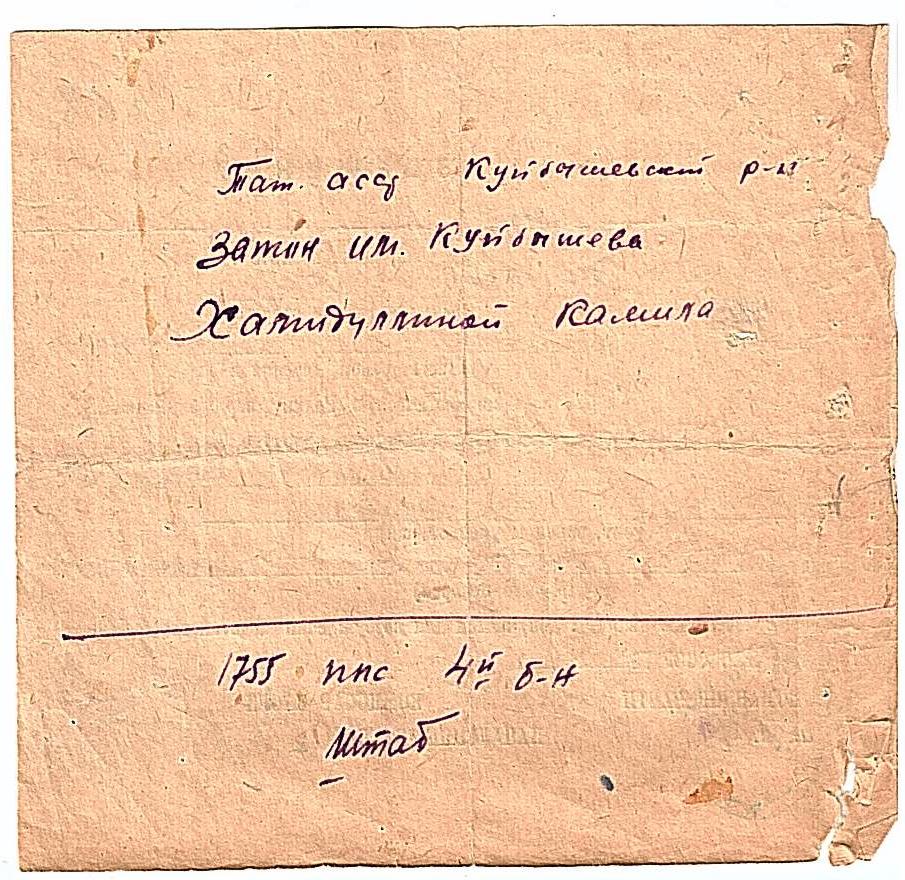 Тат. асср Куйбышевский р-н
Затон им. Куйбышева
Хамидуллиной Камила
1755 ппс 4й б-н
Штаб